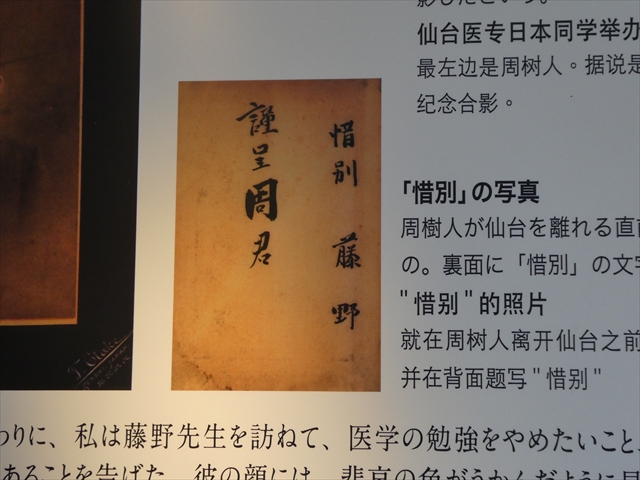 仙台医专日本同学举办
最左边是周树人。据说是
纪念合影。
惜别 藤野
謹呈周君
「惜別」の写真
周樹人が仙台を離れる直前
の。裏面に「惜別」の文字
"惜别"的照片
就在周树人离开仙台之前
并在背面题写"惜别"
わりに、私は藤野先生を訪ねて、医学の勉強をやめたいこと、
あることを告げた。彼の顔には、悲哀の色がうかんだように見